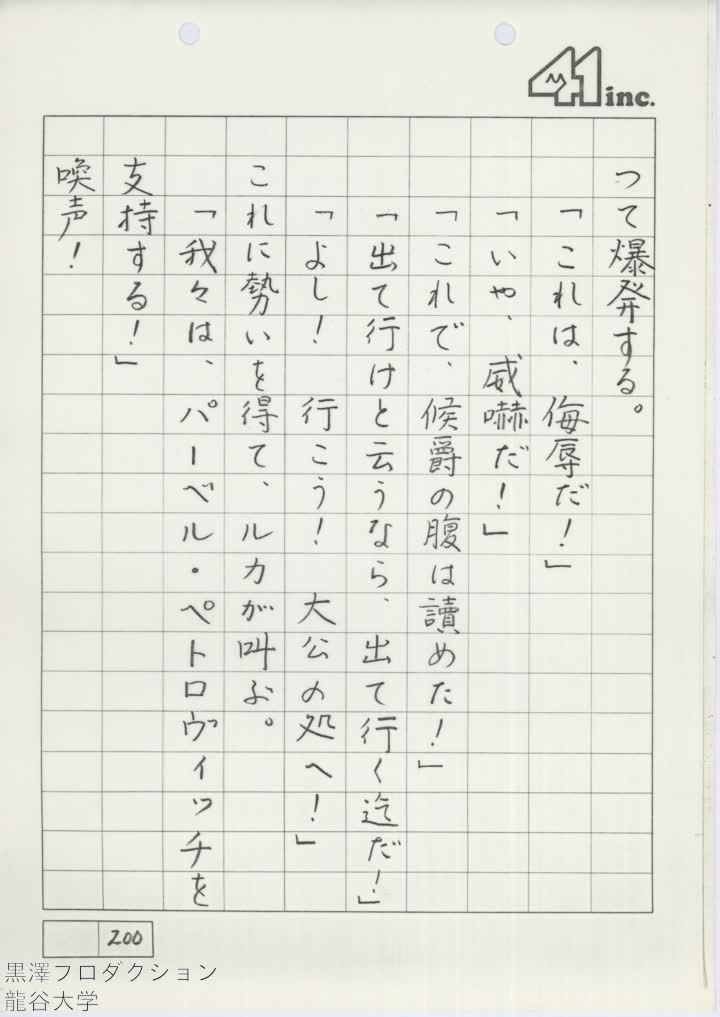 41 inc.
つて爆発する。
「これは、侮辱だ！」
「いや、威嚇だ！」
「これで、候爵の腹は讀めた！」
「出て行けと云うなら、出て行く迄だ！」
「よし！　行こう！　大公の処へ！」
これに勢いを得て、ルカが叫ぶ。
「我々は、パーベル・ペトロヴィッチを
支持する！」
喚声！
200
黒澤フロダクション
龍谷大学